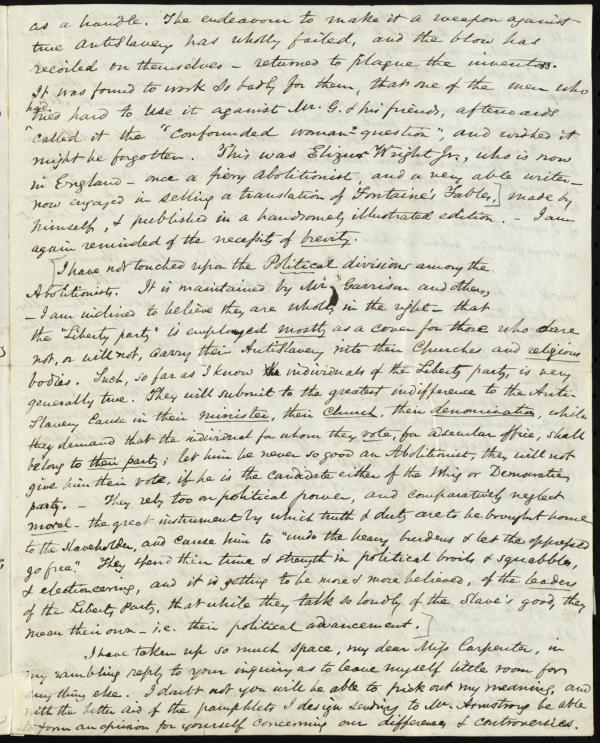 as a handle. The endeavour to make it a weapon against
true AntiSlavery has wholly failed, and the blow has
recoiled on themselves – returned to plague the inventors.
It was found to work so badly for them, that one of the men who
had tried hard to use it against Mr. G. & his friends, afterwards
"called it the "confounded woman-question", and wished it
might be forgotten. This was Elizur Wright Jr., who is now
in England – once a fiery abolitionist, and a very able writer –
now engaged in selling a translation of 'Fontaine's Fables,] made by
himself, & published in a handsomely illustrated edition. – I am
again reminded of the necessity of brevity.
[I have not touched upon the Political divisions among the
Abolitionists. It is maintained by Mr Garrison and others,
– I am inclined to believe they are wholly in the right – that
the "Liberty party" is employed mostly as a cover for those who dare
not, or will not, carry their AntiSlavery into their Churches and religious
bodies. Such, so far as I know the individuals of the Liberty party, is very
generally true. They will submit to the greatest indifference to the Anti-
Slavery Cause in their minister, their Church, their denomination, while
they demand that the individual for whom they vote, for a secular office, shall
belong to their party; let him be never so good an Abolitionist, they will not
give him their vote, if he is the candidate either of the Whig or Democratic
party. – They rely too on political power, and comparatively neglect
moral – the great instrument by which truth & duty are to be brought home
to the slaveholder, and cause him to "undo the heavy burdens & let the oppressed
go free." They spend their time & strength in political broils & squabbles,
& electioneering, and it is getting to be more & more believed, of the leaders
of the Liberty Party, that while they talk so loudly of the Slave's good, they
mean their own – i.e. their political advancement.]
I have taken up so much space, my dear Miss Carpenter, in
my rambling reply to your inquiry as to leave myself little room for
any thing else. I doubt not you will be able to pick out my meaning, and
with the better aid of the pamphlets I design sending to Mr. Armstrong be able
to form an opinion for yourself concerning our differences & controversies.